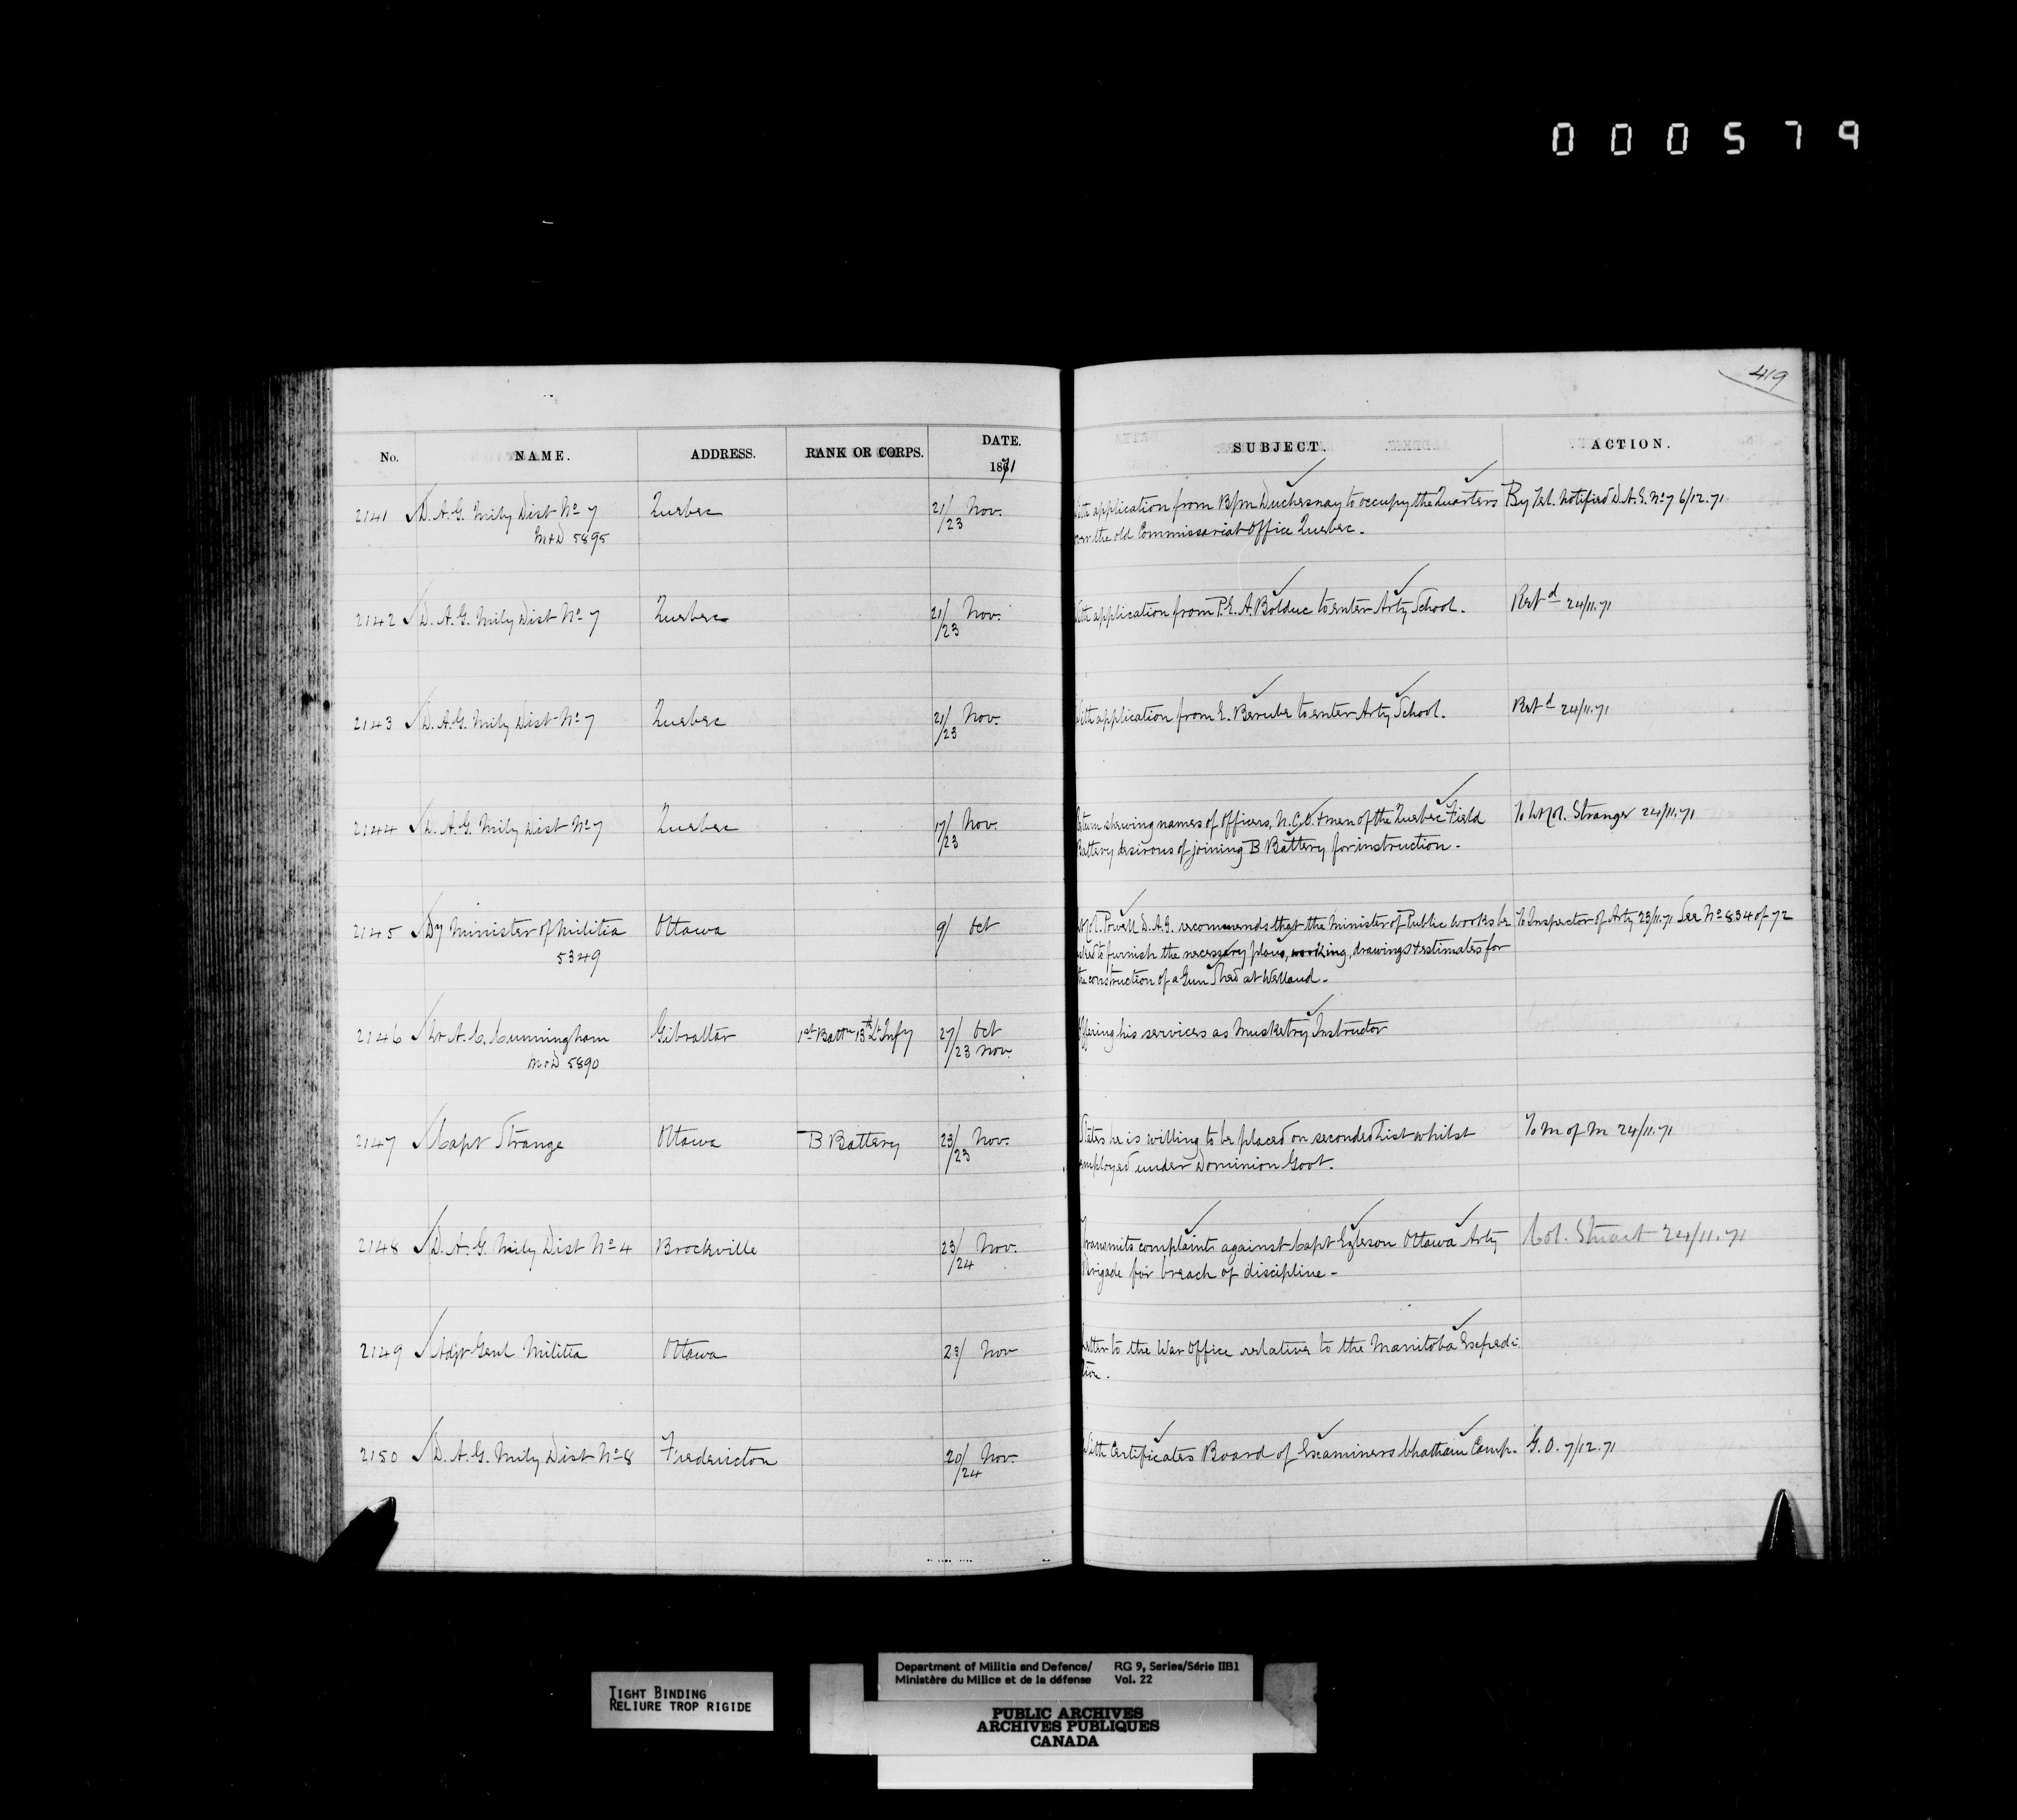 000579
419
No. NAME. ADDRESS. RANK OR CORPS. DATE. 1871 SUBJECT. ACTION.
2141 D. A. G. Mily Dist No 7 Quebec 21/23 Nov. With application from B/m Duchesnay to occupy the Quarters By Tel. Notified D.A.G. No 7 6/12.71
M&D 5895 over the old Commissariat Office Quebec.
2142 D. A. G. Mily Dist No 7 Quebec 21/23 Nov. With application from P. E. A. Bolduc to enter Arty School. Retd 24/11.71
2143 D. A. G. Mily Dist No 7 Quebec 21/23 Nov. With application from E. Berube to enter Arty School. Retd 24/11.71
2144 D. A. G. Mily Dist No 7 Quebec 17/23 Nov. Return shewing names of Officers, N.C.O. & men of the Quebec Field To Lt Col. Strange 24/11.71
Battery desirous of joining B Battery for instruction -
2145 Dy Minister of Militia Ottawa 9/ Oct Lt Col. Powell D.A.G. recommends that the Minister of Public Works be To Inspector of Arty 23/11.71 See No 834 of 72
5349 asked to furnish the necessary plans, working, drawings & estimates for
the construction of a Gun Shed at Welland.
2146 Lt A. C. Cunningham Gibraltar 1st Battn 13th Lt Infy 27/ Oct Offering his services as Musketry Instructor
M&D 5890 /23 Nov.
2147 Capt Strange Ottawa B Battery 23/23 Nov. States he is willing to be placed on seconded List whilst To M of M 24/11.71
employed under Dominion Govt.
2148 D. A. G. Mily Dist No 4 Brockville 23/24 Nov. Transmits complaints against Capt Egleson Ottawa Arty Col. Stuart 24/11.71
Brigade for breach of discipline -
2149 Adjt Genl Militia Ottawa 23/ Nov Letter to the War Office relative to the Manitoba Expedi-
tion.
2150 D. A. G. Mily Dist No 8 Fredericton 20/24 Nov. With Certificates Board of Examiners Chatham Camp. G. O. 7/12.71
TIGHT BINDING
RELIURE TROP RIGIDE
Department of Militia and Defence/ RG 9, Series/Série IIB1
Ministère du Milice et de la défense Vol. 22
PUBLIC ARCHIVES
ARCHIVES PUBLIQUES
CANADA